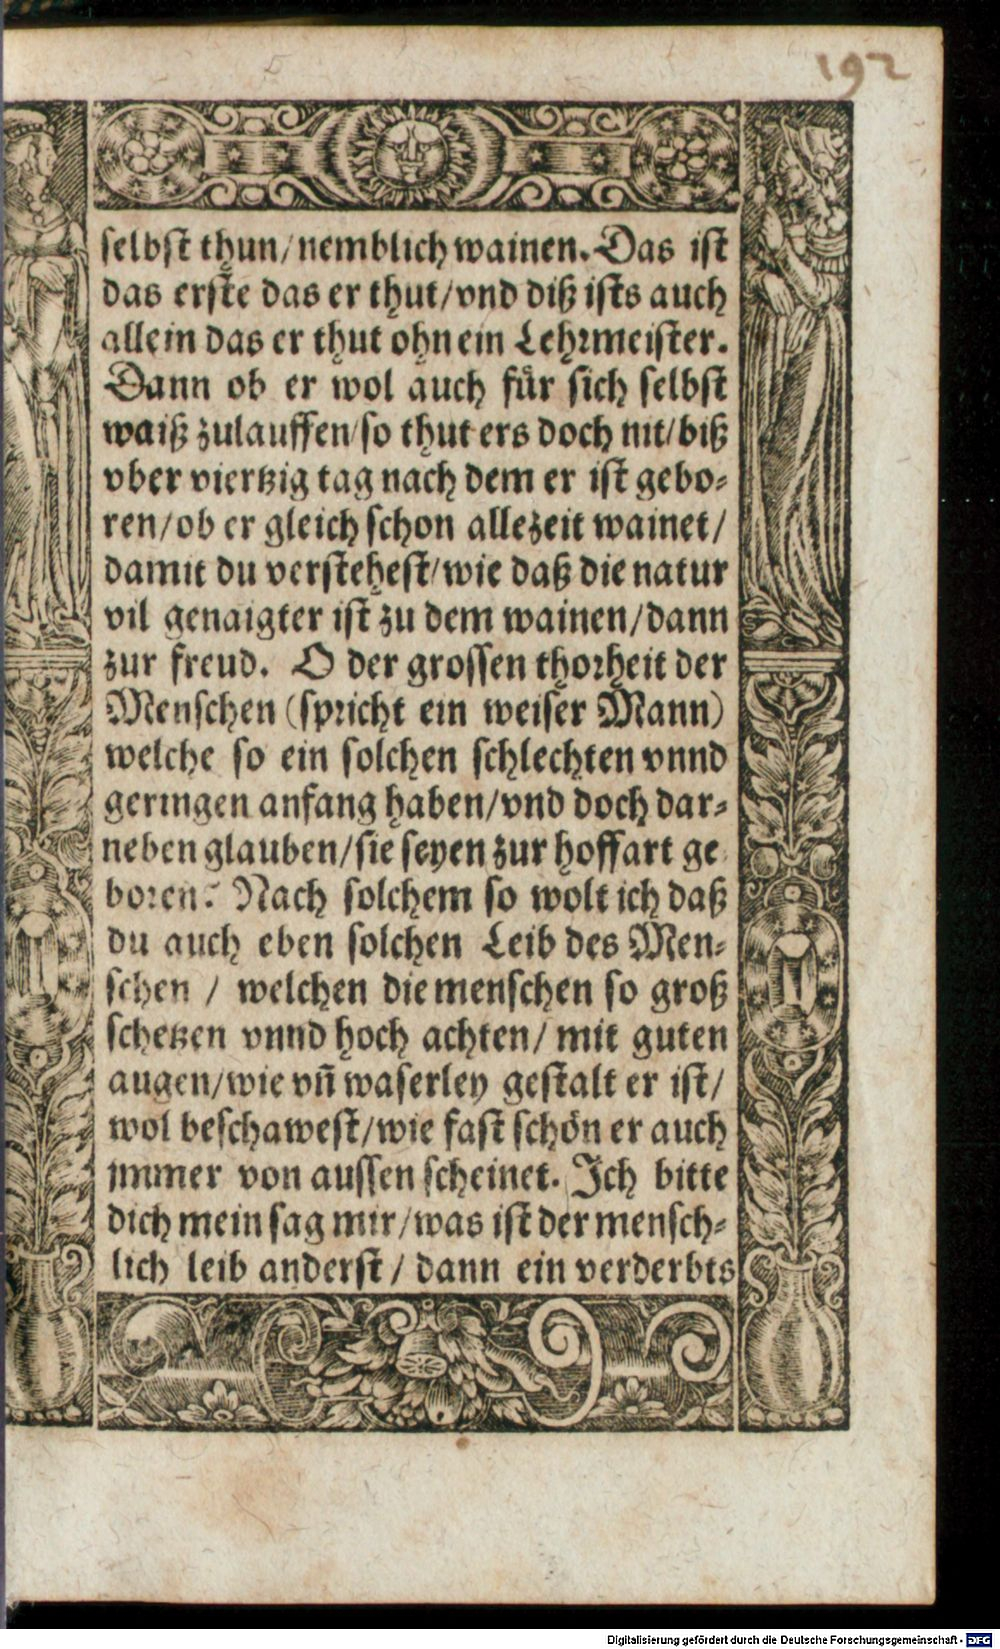 192
selbst thun/nemblich wainen. Das ist
das erste das er thut/vnd diß ists auch
allein das er thut ohn ein Lehrmeister.
Dann ob er wol auch für sich selbst
waiß zulauffen/so thut ers doch nit/biß
vber viertzig tag nach dem er ist gebo-
ren/ob er gleich schon allezeit wainet/
damit du verstehest/wie daß die natur
vil genaigter ist zu dem wainen/dann
zur freud. O der grossen thorheit der
Menschen (spricht ein weiser Mann)
welche so ein solchen schlechten vnnd
geringen anfang haben/vnd doch dar-
neben glauben/sie seyen zur hoffart ge
boren: Nach solchem so wolt ich daß
du auch eben solchen Leib des Men-
schen / welchen die menschen so groß
schetzen vnnd hoch achten/ mit guten
augen/wie vñ waserley gestalt er ist/
wol beschawest/wie fast schön er auch
jmmer von aussen scheinet. Ich bitte
dich mein sag mir/was ist der mensch-
lich leib anderst/ dann ein verderbts
Digitalisierung gefördert durch die Deutsche Forschungsgemeinschaft - DFG